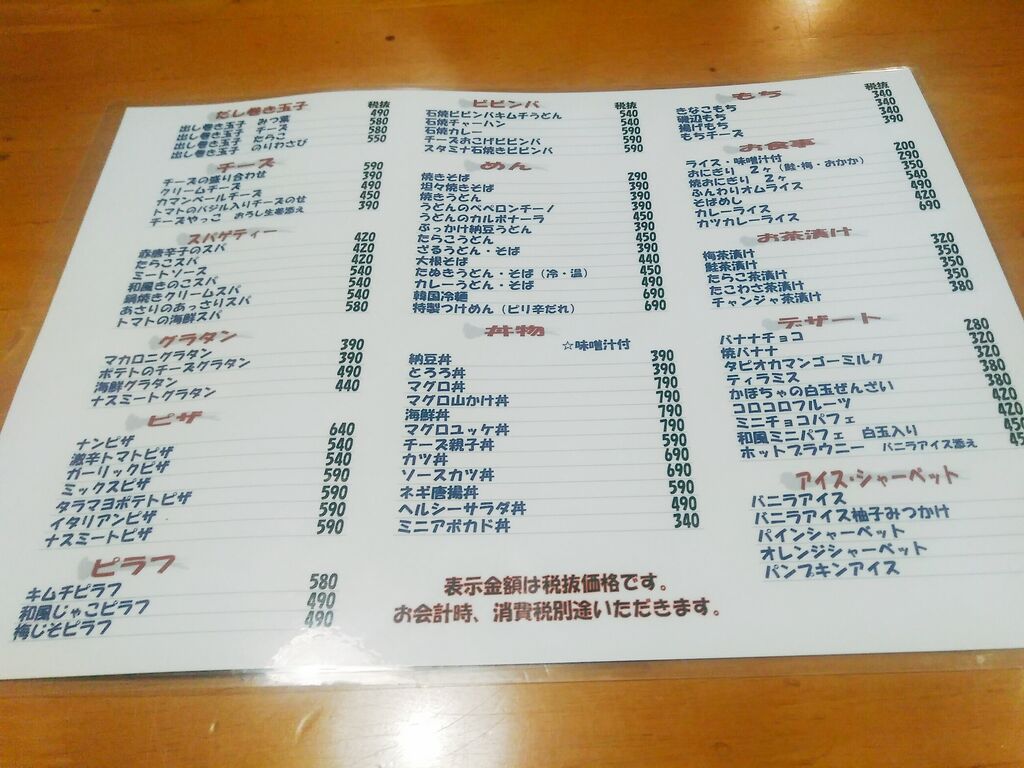 だし巻き玉子 税抜
出し巻き玉子 みつ葉 490
出し巻き玉子 チーズ 580
出し巻き玉子 たらこ 580
出し巻き玉子 のりわさび 550
チーズ
チーズの盛り合わせ 590
クリームチーズ 350
カマンベールチーズ 390
トマトのバジル入りチーズのせ 490
チーズやっこ おろし生姜添え 390
スパゲティー
赤唐辛子のスパ 420
たらこスパ 420
ミートソース 420
和風きのこスパ 540
鍋焼きクリームスパ 540
あさりのあっさりスパ 540
トマトの海鮮スパ 580
グラタン
マカロニグラタン 390
ポテトのチーズグラタン 390
海鮮グラタン 490
ナスミートグラタン 440
ピザ
ナンピザ 640
激辛トマトピザ 540
ガーリックピザ 540
ミックスピザ 590
タラマヨポテトピザ 590
イタリアンピザ 590
ナスミートピザ 590
ピラフ
キムチピラフ 580
和風じゃこピラフ 490
梅じそピラフ 490
ビビンバ 税抜
石焼ビビンバキムチうどん 540
石焼チャーハン 540
石焼カレー 590
チーズおこげビビンバ 590
スタミナ石焼きビビンバ 590
めん
焼きそば 290
坦々焼きそば 390
焼きうどん 390
うどんのペペロンチーノ 390
うどんのカルボナーラ 450
ぶっかけ納豆うどん 390
たらこうどん 450
ざるうどん・そば 390
大根そば 440
たぬきうどん・そば（冷・温） 450
カレーうどん・そば 490
韓国冷麺 690
特製つけめん（ピリ辛だれ） 690
丼物
☆味噌汁付
納豆丼 390
とろろ丼 390
マグロ丼 790
マグロ山かけ丼 790
海鮮丼 790
マグロユッケ丼 790
チーズ親子丼 590
カツ丼 690
ソースカツ丼 690
ネギ唐揚丼 590
ヘルシーサラダ丼 490
ミニアボカド丼 340
表示金額は税抜価格です。
お会計時、消費税別途いただきます。
もち 税抜
きなこもち 340
磯辺もち 340
揚げもち 340
もちチーズ 390
お食事
ライス・味噌汁付 200
おにぎり 2ヶ（鮭・梅・おかか） 290
焼おにぎり 2ヶ 350
ふんわりオムライス 540
そばめし 490
カレーライス 420
カツカレーライス 690
お茶漬け
梅茶漬け 320
鮭茶漬け 350
たらこ茶漬け 350
たこわさ茶漬け 350
チャンジャ茶漬け 380
デザート
バナナチョコ 280
焼バナナ 320
タピオカマンゴーミルク 320
ティラミス 380
かぼちゃの白玉ぜんざい 380
コロコロフルーツ 420
ミニチョコパフェ 420
和風ミニパフェ 白玉入り 450
ホットブラウニー バニラアイス添え
アイス・シャーベット
バニラアイス
バニラアイス柚子みつかけ
パインシャーベット
オレンジシャーベット
パンプキンアイス